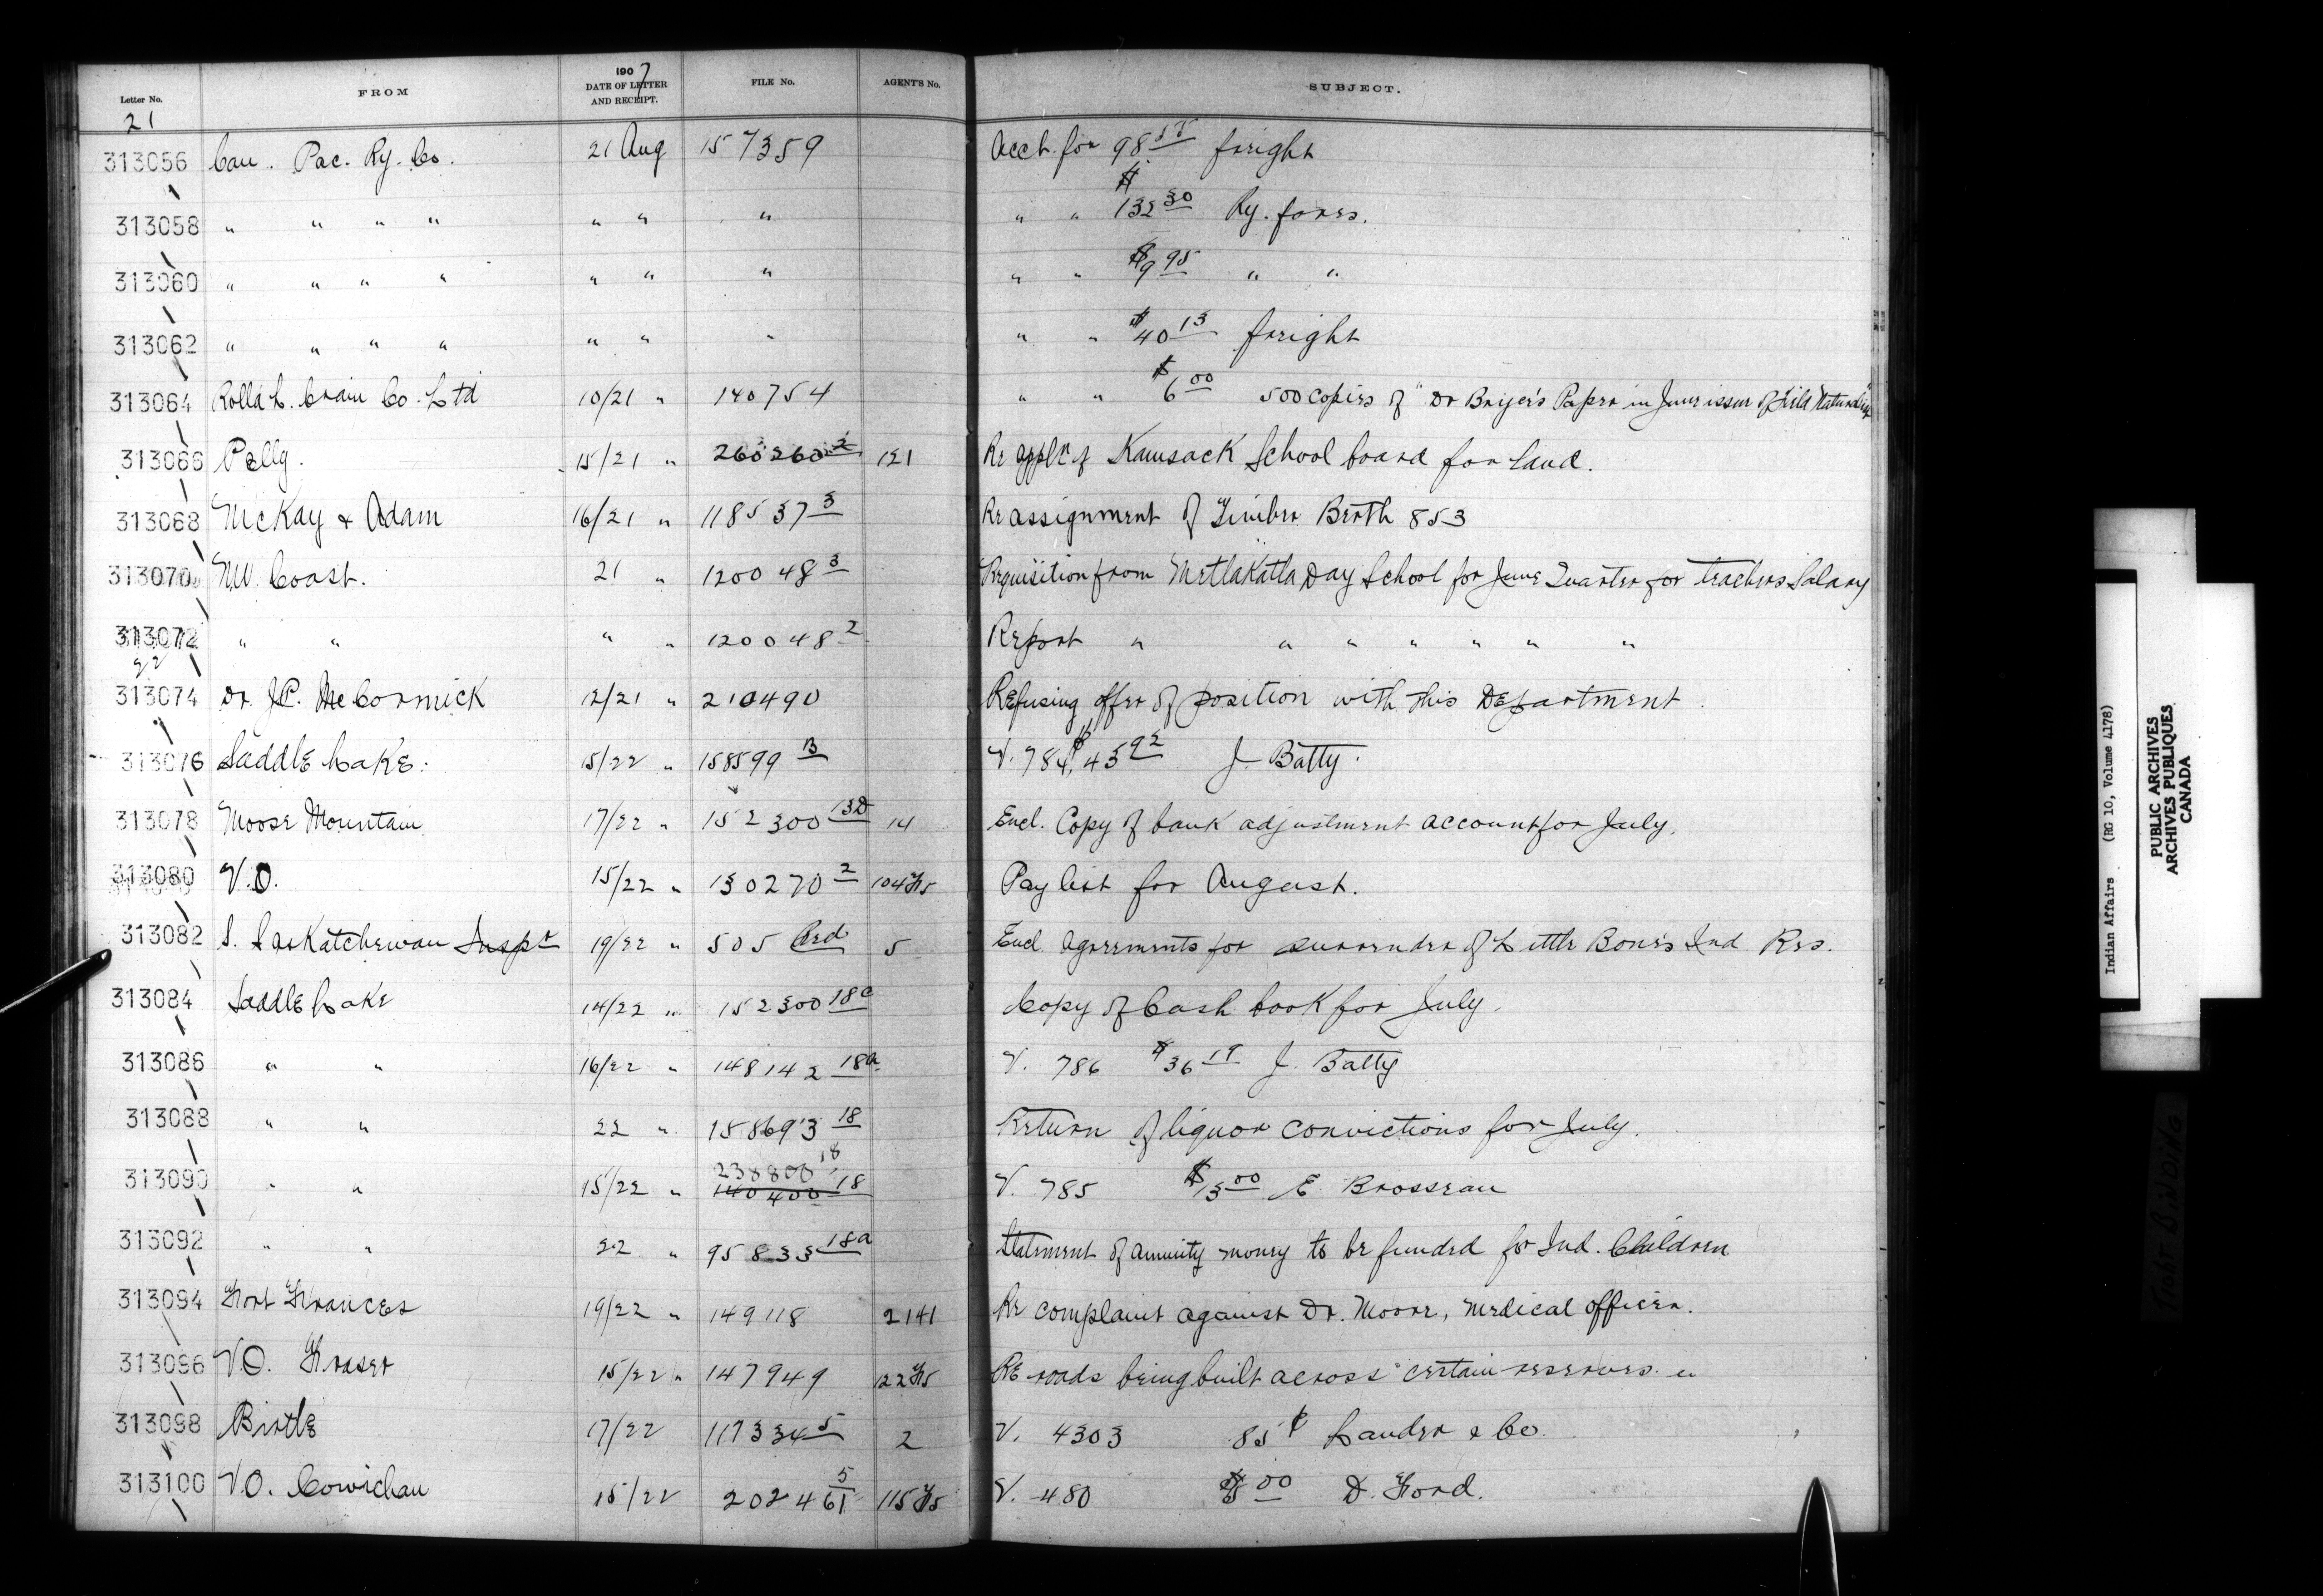 Letter No. FROM 1907 DATE OF LETTER AND RECEIPT. FILE No. AGENT'S No. SUBJECT.
21
313056 Can. Pac. Ry. Co. 21 Aug 157359 Acct. for 98 freight
313058 " " " " " " " " " $132 30 Ry. fares.
313060 " " " " " " " " " $9 95 " "
313062 " " " " " " " " " $40 13 freight
313064 Rolla L. Crain Co. Ltd 10/21 " 140754 " " $6 00 500 copies of "Dr Bryce's Paper in June issue of Field Naturalist"
313066 Pelly. 15/21 " 260260-2 121 Re appl'n of Kamsack School board for land.
313068 McKay & Adam 16/21 " 118537 3 Re assignment of Timber Berth 853
313070 N.W. Coast. 21 " 120048 3 Requisition from Metlakatla Day School for June Quarter for teachers Salary
313072 " " " " 120048 2 Report " " " " " " "
22
313074 Dr. J.P. McCormick 12/21 " 210490 Refusing offer of position with this Department.
313076 Saddle Lake. 15/22 " 158599 B V. 784, $45 92 J. Batty.
313078 Moose Mountain 17/22 " 152300 13D 14 Encl. Copy of bank adjustment account for July.
313080 V.O. 15/22 " 130270 2 104 Pay list for August.
313082 S. Saskatchewan Inspt 19/22 " 505 5 Encl agreements for surrender of Little Bone's Ind Res.
313084 Saddle Lake 14/22 " 152300 18c Copy of Cash book for July.
313086 " " 16/22 " 148142 18a V. 786 $36 19 J. Batty
313088 " " 22 " 158693 18 Return of liquor convictions for July.
313090 " " 15/22 " 238800 18 140400 18 V. 785 00 E. Brosseau
313092 " " 22 " 95833 18a Statement of annuity money to be funded for Ind. Children
313094 Fort Frances 19/22 " 149118 2141 Re complaint against Dr. Moore, medical officer.
313096 V.O. Fraser 15/22 " 147949 22 Re roads being built across certain reserves.
313098 Birtle 17/22 117334 5 2 V. 4303 85¢ Lauder & Co.
313100 V.O. Cowichan 15/22 202461 5 115 V. 480 00 D. Ford.
Indian Affairs (RG 10, Volume 4178)
PUBLIC ARCHIVES
ARCHIVES PUBLIQUES
CANADA
TIGHT BINDING